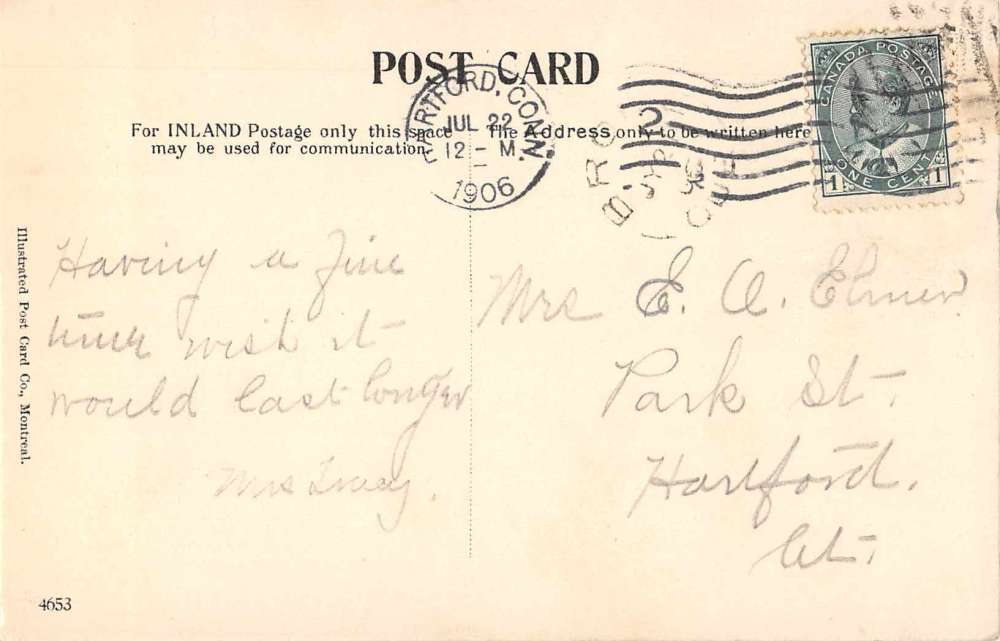 POST CARD
For INLAND Postage only this space
may be used for communication.
The Address only to be written here
HARTFORD, CONN.
JUL 22
12 - M
1906
CANADA POSTAGE
ONE CENT
1 1
BRO
Having a fine
time wish it
would last longer
Mrs Tracy.
Mrs E. A. Elmer
Park St.
Hartford.
Ct.
Illustrated Post Card Co., Montreal.
4653